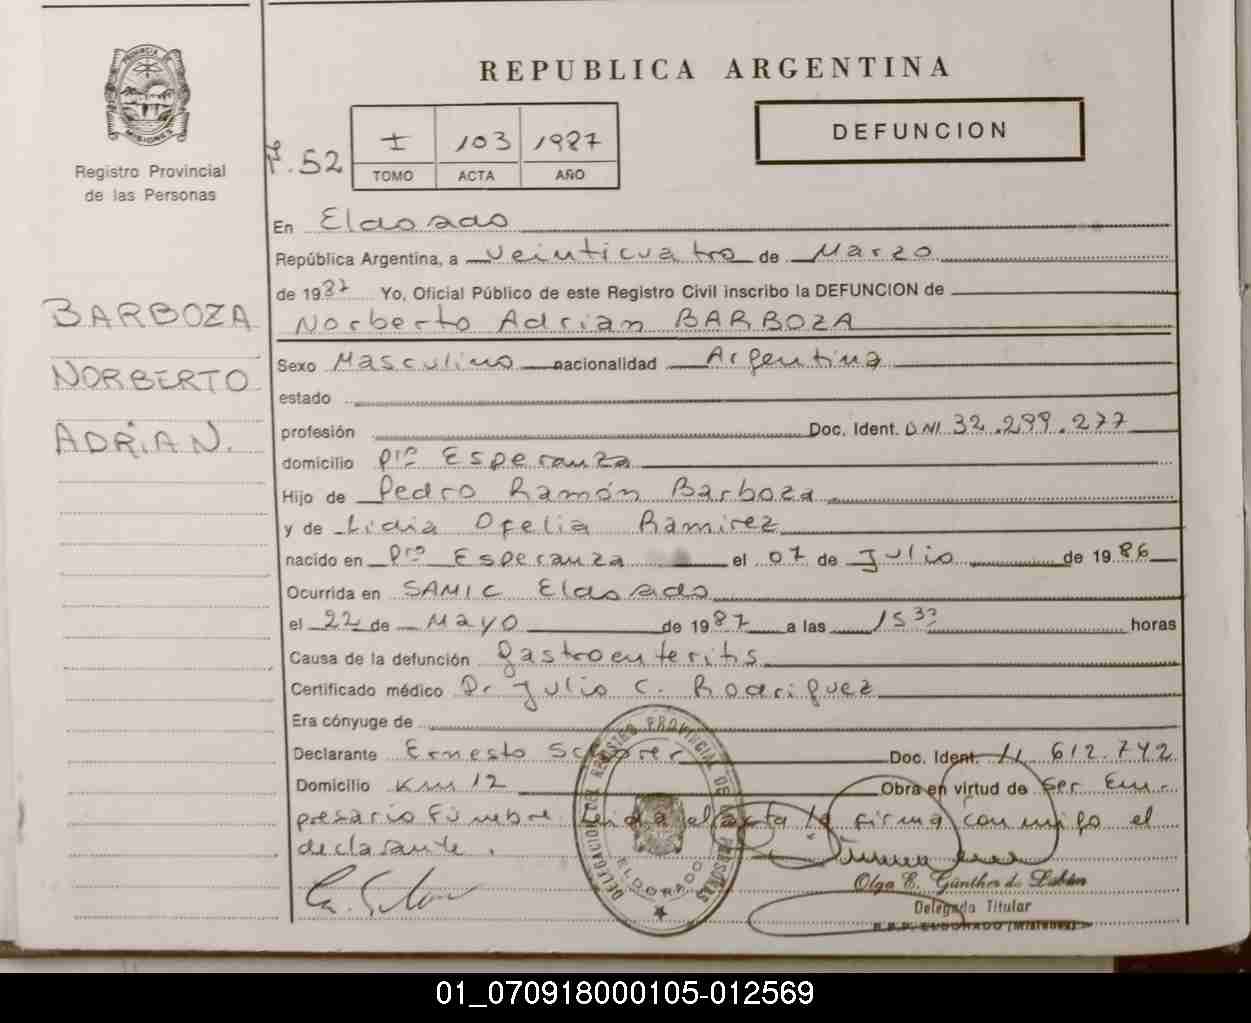 PROVINCIA DE
MISIONES
Registro Provincial
de las Personas
REPUBLICA ARGENTINA
DEFUNCION
F. 52
I 103 1987
TOMO ACTA AÑO
En Eldorado
República Argentina, a veinticuatro de Marzo
de 1987 Yo, Oficial Público de este Registro Civil inscribo la DEFUNCION de
Norberto Adrian BARBOZA
BARBOZA
NORBERTO
ADRIAN.
Sexo Masculino nacionalidad Argentina
estado
profesión Doc. Ident. DNI 32.299.277
domicilio Pto Esperanza
Hijo de Pedro Ramón Barboza
y de Lidia Ofelia Ramirez
nacido en Pto Esperanza el 07 de Julio de 1986
Ocurrida en SAMIC Eldorado
el 22 de Mayo de 1987 a las 15 horas
Causa de la defunción gastroenteritis
Certificado médico Dr Julio C. Rodriguez
Era cónyuge de
Declarante Ernesto Doc. Ident. 11.612.742
Domicilio Km 12 Obra en virtud de ser Em-
presario Fúnebre Leida el acta la firma conmigo el
declarante.
DELEGACION DEL REGISTRO PROVINCIAL DE LAS PERSONAS
ELDORADO
Olga E. Günther de
Delegada Titular
R.P.P. ELDORADO (MISIONES)
01_070918000105-012569